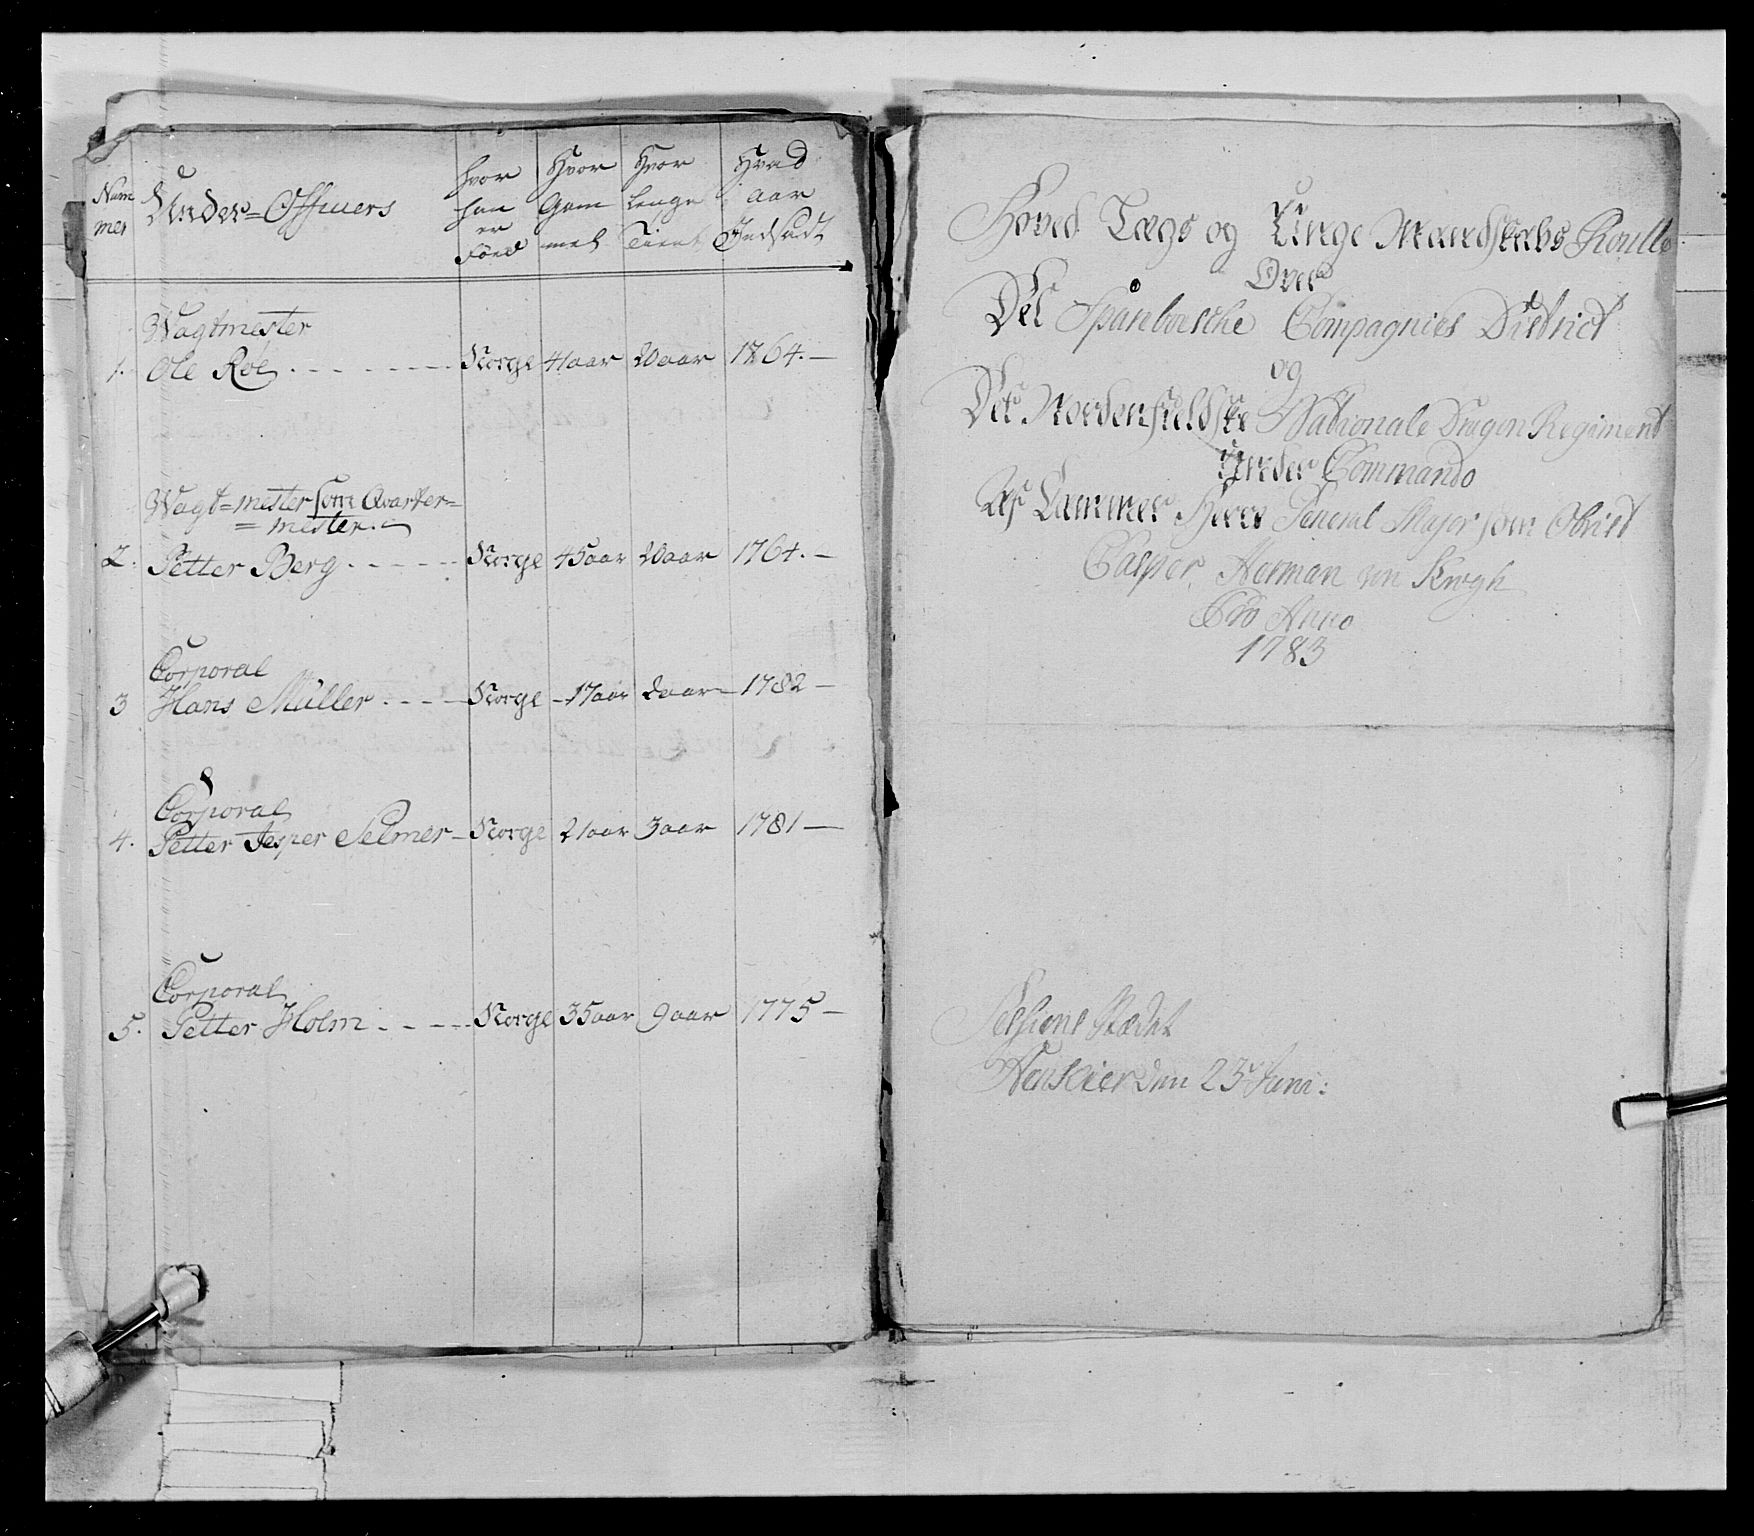 Num
mer
Under-Officers
hvor
han
er
Föed
Hvor
Gam
mel
Hvor
lenge
Tient
Hvad
aar
Indsadt
Wagtmester
1. Ole Roe - - - - Norge 41 aar 20 aar 1764. —
Wagt=mester som Qvarter=
=mester.
2. Petter Berg - - - - Norge 45 aar 20 aar 1764. —
Corporal
3 Hans Müller - - - - Norge - 17 aar 2 aar - 1782 —
Corporal
4. Petter Jesper Selmer - Norge 21 aar 3 aar 1781 —
Corporal
5. Petter Holm - - - - Norge 35 aar 9 aar 1775 —
Hoved Lægs og Unge Mandskabs Roulle
Over
Det Spanboeske Compagnies District
og
Det Nordenfieldske Nationale Dragon Regiment
Under Commando
Af Cammer Herre General Major som Obrist
Casper Herman von Krogh
Pro Anno
1783
Sessions Stædet
den 23 Juni: